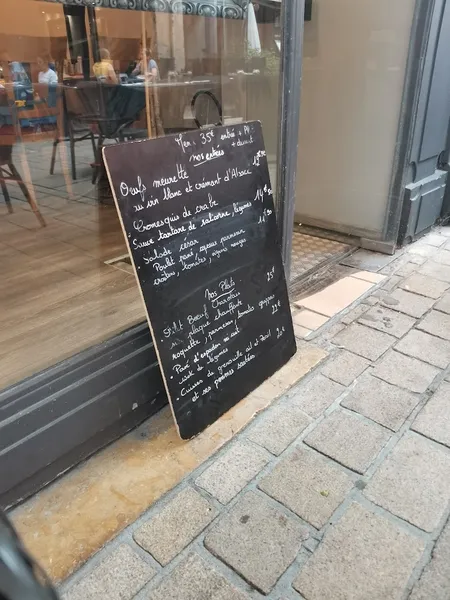 35€ entrée + Plat
+ dessert
nos entrées
Oeufs meurette
au vin blanc et crémant d'Alsace
Cromesquis de crabe
Sauce tartare de saison, légumes
Salade césar
Poulet pané, sauce parmesan
croûtons, tomates, oignons rouges
Nos Plats
Boeuf Charolais 25€
sur plaque chauffante
roquette, parmesan, tomates
Pavé d'espadon mi cuit
wok de légumes
Cuisses de grenouille ail et persil
et ses pommes sautées